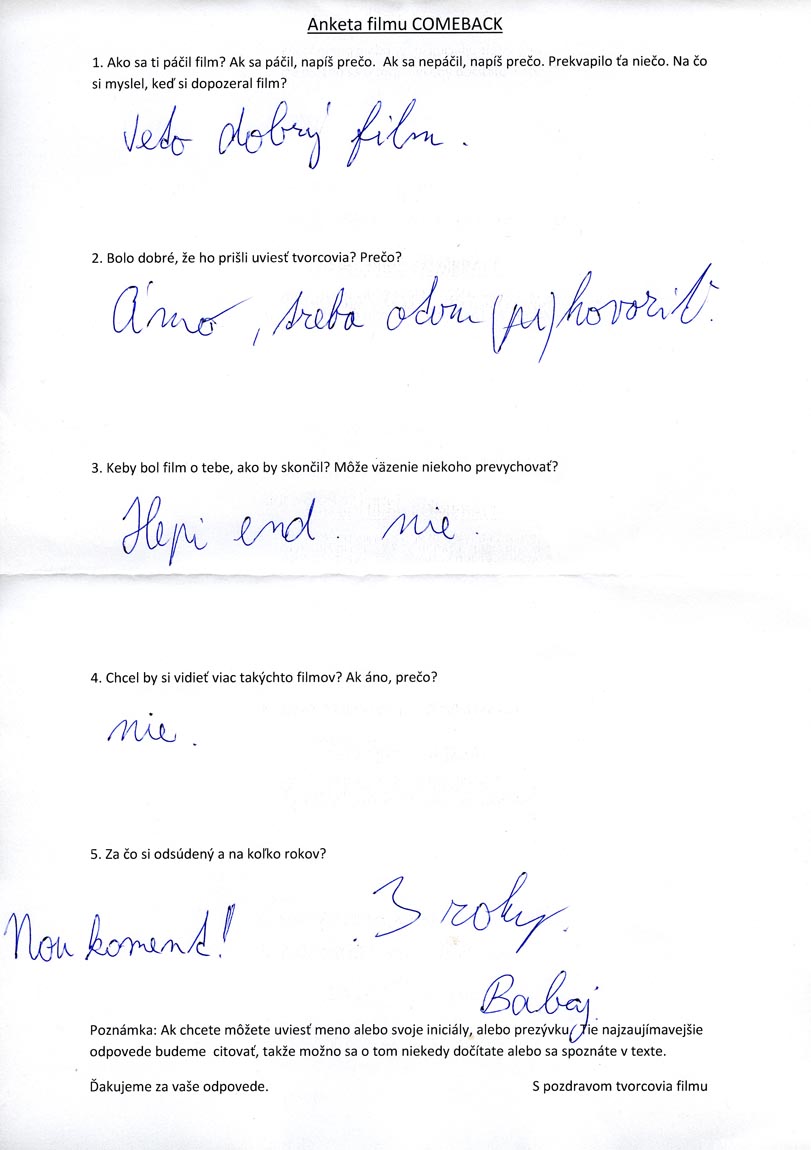 Anketa filmu COMEBACK
1. Ako sa ti páčil film? Ak sa páčil, napíš prečo. Ak sa nepáčil, napíš prečo. Prekvapilo ťa niečo. Na čo
si myslel, keď si dopozeral film?
dobrý film.
2. Bolo dobré, že ho prišli uviesť tvorcovia? Prečo?
Áno, treba otom (pri)hovoriť.
3. Keby bol film o tebe, ako by skončil? Môže väzenie niekoho prevychovať?
Hepi end. nie.
4. Chcel by si vidieť viac takýchto filmov? Ak áno, prečo?
nie.
5. Za čo si odsúdený a na koľko rokov?
3 roky.
Nou koment!
Babaj
Poznámka: Ak chcete môžete uviesť meno alebo svoje iniciály, alebo prezývku. Tie najzaujímavejšie
odpovede budeme citovať, takže možno sa o tom niekedy dočítate alebo sa spoznáte v texte.
Ďakujeme za vaše odpovede. S pozdravom tvorcovia filmu